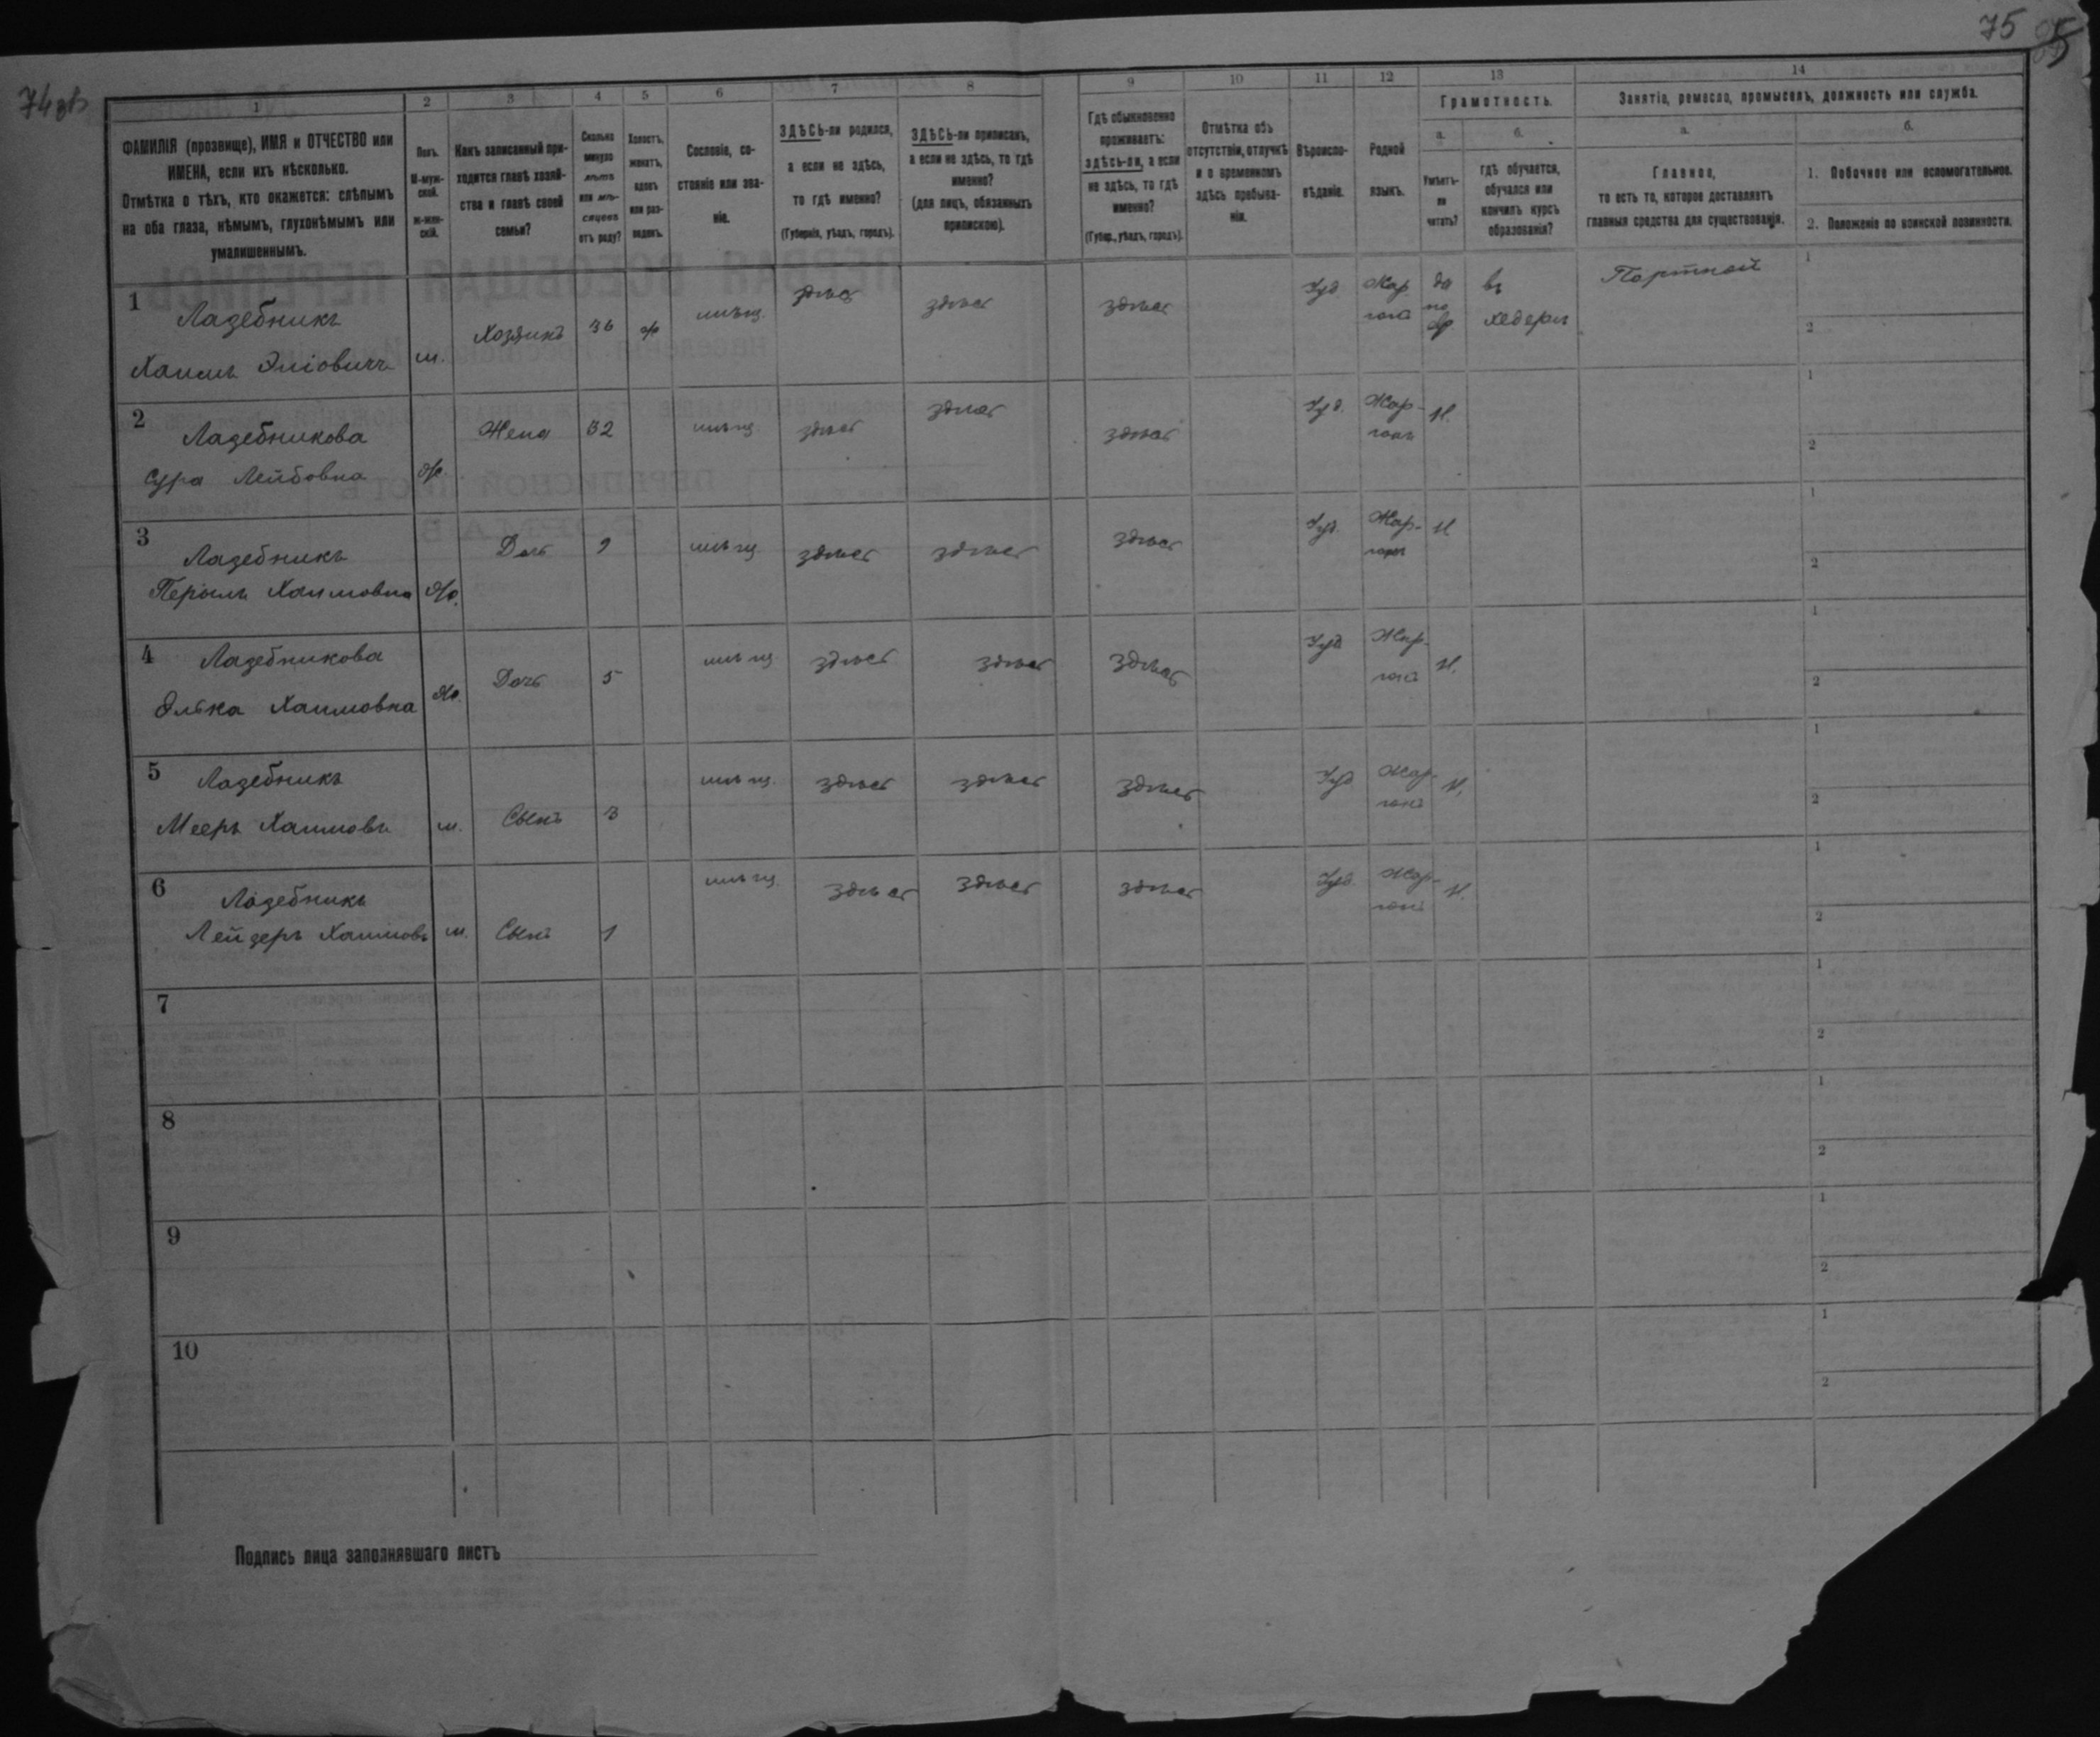 75
74 зв
1
2
3
4
5
6
7
8
9
10
11
12
13
14
ФАМИЛІЯ (прозвище), ИМЯ и ОТЧЕСТВО или
ИМЕНА, если ихъ нѣсколько.
Отмѣтка о тѣхъ, кто окажется: слѣпымъ
на оба глаза, нѣмымъ, глухонѣмымъ или
умалишеннымъ.
Полъ.
М-муж-
ской.
ж-жен-
скій.
Какъ записанный при-
ходится главѣ хозяй-
ства и главѣ своей
семьи?
Сколько
минуло
лѣтъ
или мѣ-
сяцевъ
отъ роду?
Холостъ,
женатъ,
вдовъ
или раз-
веденъ.
Сословіе, со-
стояніе или зва-
ніе.
ЗДѢСЬ-ли родился,
а если не здѣсь,
то гдѣ именно?
(Губернія, уѣздъ, городъ).
ЗДѢСЬ-ли приписанъ,
а если не здѣсь, то гдѣ
именно?
(для лицъ, обязанныхъ
припискою).
Гдѣ обыкновенно
проживаетъ:
здѣсь-ли, а если
не здѣсь, то гдѣ
именно?
(Губер., уѣздъ, городъ).
Отмѣтка объ
отсутствіи, отлучкѣ
и о временномъ
здѣсь пребыва-
ніи.
Вѣроиспо-
вѣданіе.
Родной
языкъ.
Грамотность.
а.
Умѣетъ-
ли
читать?
б.
гдѣ обучается,
обучался или
кончилъ курсъ
образованія?
Занятіе, ремесло, промыселъ, должность или служба.
а.
Главное,
то есть то, которое доставляетъ
главныя средства для существованія.
б.
1. Побочное или вспомогательное.
2. Положеніе по воинской повинности.
1
Лазебникъ
Хаимъ Эліовичъ
м.
Хозяинъ
36
ж
мѣщ.
здѣсь
здѣсь
здѣсь
Іуд
Жар
гонъ
да
по
евр
въ
хедерѣ
Портной
1
2
2
Лазебникова
Сура Лейбовна
ж.
Жена
32
мѣщ
здѣсь
здѣсь
здѣсь
Іуд.
Жар-
гонъ
Н.
1
2
3
Лазебникъ
Перыль Хаимовна
ж.
Дочь
9
мѣщ
здѣсь
здѣсь
здѣсь
Іуд.
Жар-
гонъ
Н
1
2
4
Лазебникова
Элька Хаимовна
ж.
Дочь
5
мѣщ
здѣсь
здѣсь
здѣсь
Іуд
Жар-
гонъ
Н.
1
2
5
Лазебникъ
Мееръ Хаимовъ
м.
Сынъ
3
мѣщ.
здѣсь
здѣсь
здѣсь
Іуд
Жар-
гонъ
Н.
1
2
6
Лазебникъ
Лейзеръ Хаимовъ
м.
Сынъ
1
мѣщ.
здѣсь
здѣсь
здѣсь
Іуд
Жар-
гонъ
Н.
1
2
7
1
2
8
1
2
9
1
2
10
1
2
Подпись лица заполнявшаго листъ